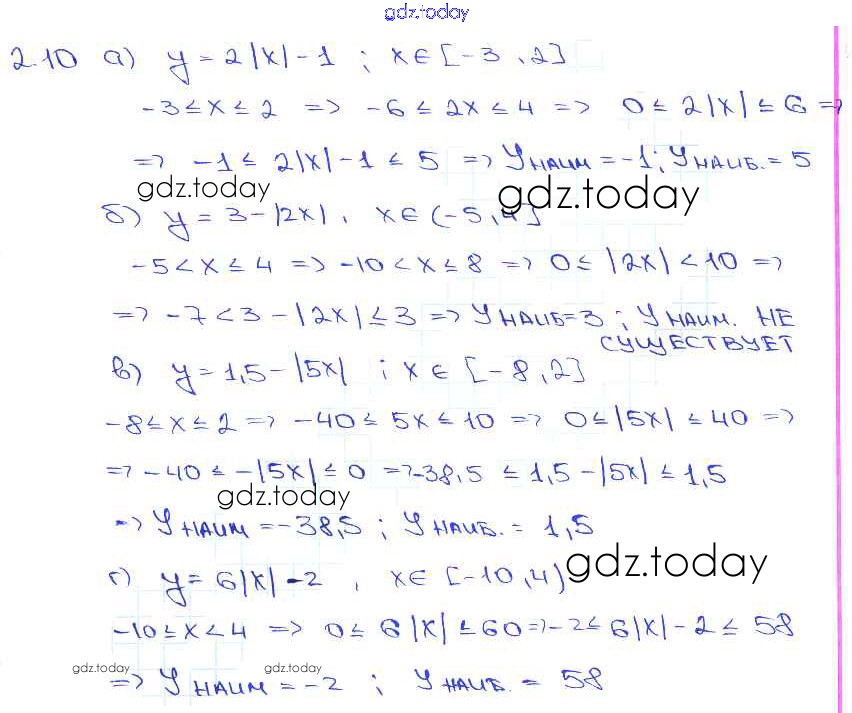 gdz.today
2.10 а) y = 2|x| - 1 ; x ∈ [-3, 2]
-3 ≤ x ≤ 2 => -6 ≤ 2x ≤ 4 => 0 ≤ 2|x| ≤ 6 =>
=> -1 ≤ 2|x| - 1 ≤ 5 => y наим = -1; y наиб. = 5
gdz.today gdz.today
б) y = 3 - |2x|, x ∈ (-5, 4]
-5 < x ≤ 4 => -10 < x ≤ 8 => 0 ≤ |2x| < 10 =>
=> -7 < 3 - |2x| ≤ 3 => y наиб = 3 ; y наим. не
существует
в) y = 1,5 - |5x| ; x ∈ [-8, 2]
-8 ≤ x ≤ 2 => -40 ≤ 5x ≤ 10 => 0 ≤ |5x| ≤ 40 =>
=> -40 ≤ -|5x| ≤ 0 => -38,5 ≤ 1,5 - |5x| ≤ 1,5
gdz.today
=> y наим = -38,5 ; y наиб. = 1,5
г) y = 6|x| - 2 , x ∈ [-10, 4) gdz.today
-10 ≤ x < 4 => 0 ≤ 6|x| ≤ 60 => -2 ≤ 6|x| - 2 ≤ 58
gdz.today gdz.today
=> y наим = -2 ; y наиб. = 58